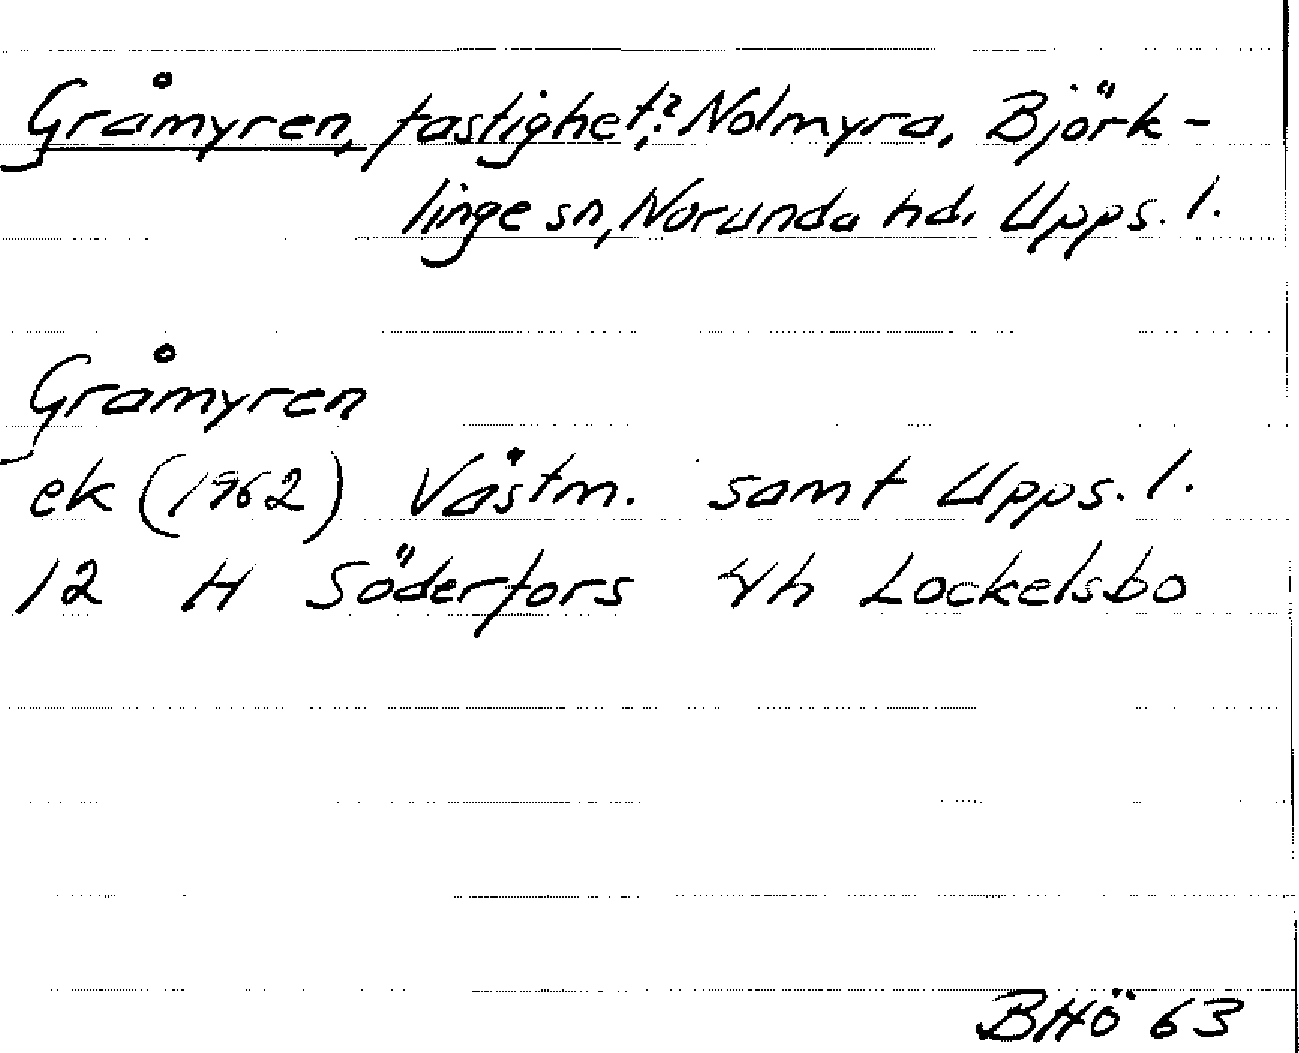 Gråmyren, fastighet?, Nolmyra, Björk-
linge sn, Norunda hd. Upps. l.
Gråmyren
ek (1962) Västm. samt Upps. l.
12 H Söderfors 4h Lockelsbo
BHö 63